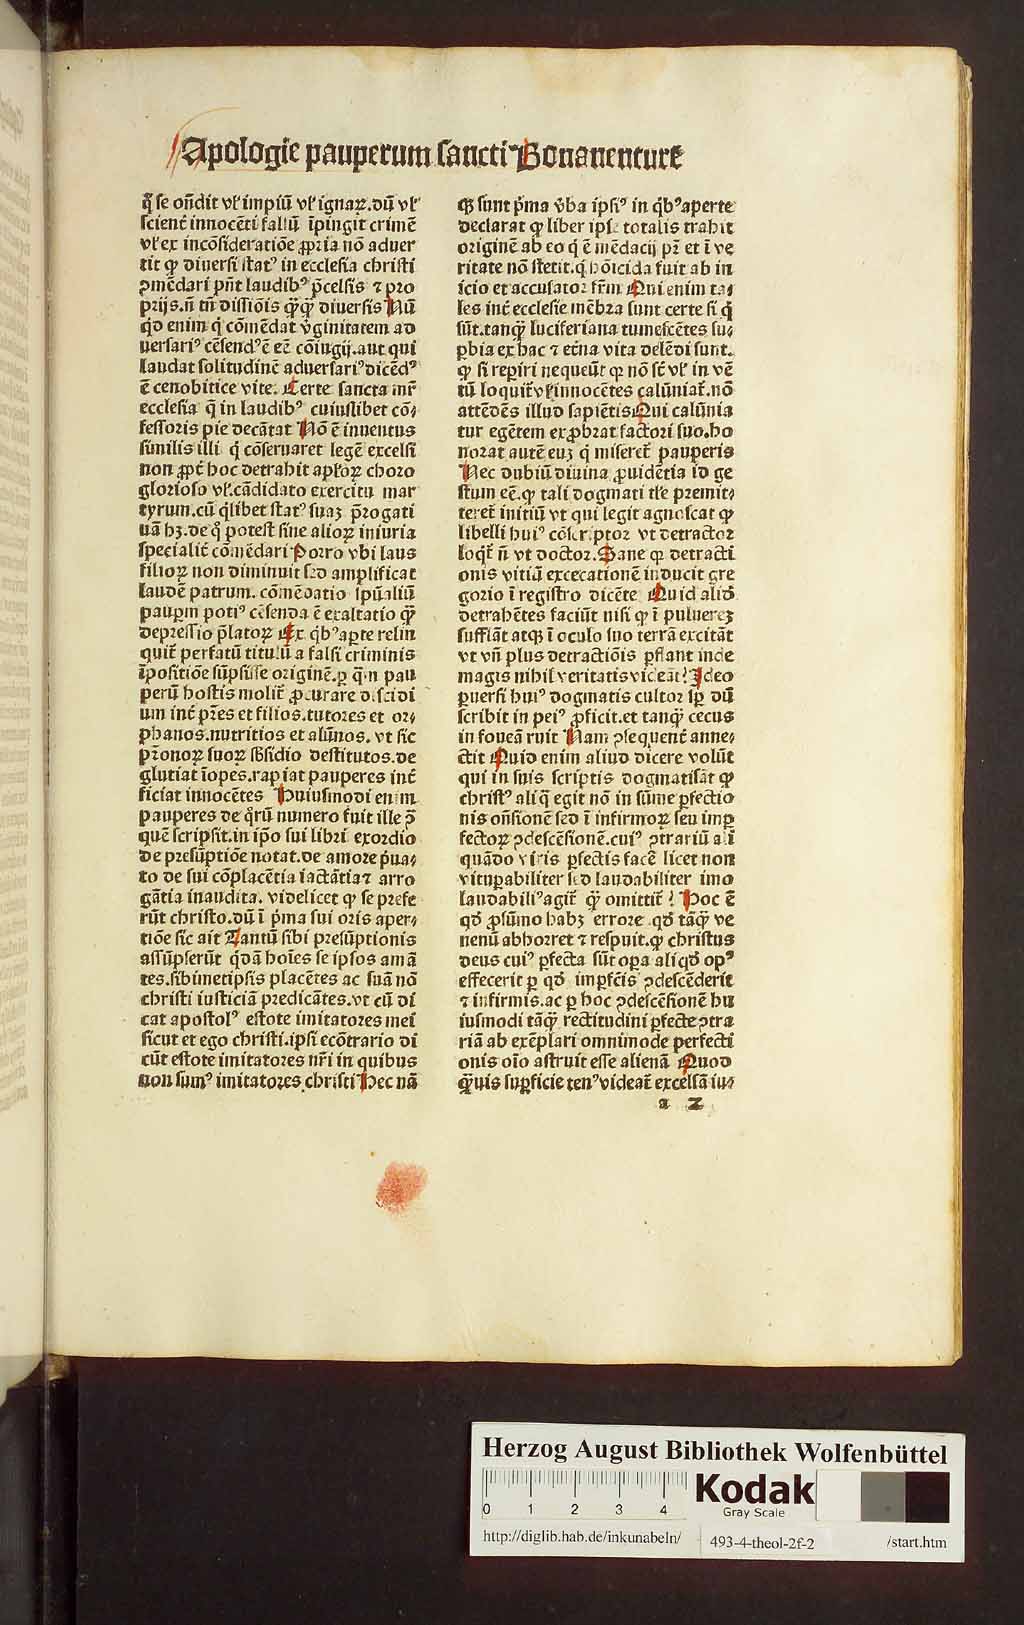 Apologie pauperum sancti Bonauenture
q̄ se on̄dit vł impiū vł ignaꝝ. dū vł
scient̄ innocēti falsū īpingit crimē
vł ex incōsideratiōe ꝓpria nō aduer
tit ꝙ diuersi statꝰ in ecclesia christi
ꝯmēdari pn̄t laudibꝰ p̄celsis ⁊ pro
prijs. n̄ tn̄ dissiōis q̄ꝙ̄ diuersis Nū
qd enim q̇ cōmēdat v̇ginitatem ad
uersariꝰ cēsendꝰ ē eē cōiugij. aut qui
laudat solitudinē aduersariꝰ dicēdꝰ
ē cenobitice vite. Certe sancta mr̄
ecclesia q̄ in laudibꝰ cuiuslibet cō⸗
fessoris pie decātat Nō ē inuentus
similis illi q̇ cōseruaret legē excelsi
non ꝓpt̄ hoc detrahit apłoꝝ choro
glorioso vł. cādidato exercitu mar
tyrum. cū q̇libet statꝰ suaꝫ p̄rogati
uā hꝫ. de qͦ potest sine alioꝝ iniuria
specialit̄ cōmēdari Porro vbi laus
filioꝝ non diminuit sed amplificat
laudē patrum. cōmēdatio spūaliū
pauꝑm potiꝰ cēsenda ē exaltatio ꝙ̄
depressio p̄latoꝝ Ex q̇bꝰ aꝑte relin
quit̄ perfatū titulū a falsi criminis
īpositiōe sūpsisse originē. ꝑ q̄m pau
perū hostis molit̄ ꝓcurare discidi
um int̄ pr̄es et filios. tutores et or⸗
phanos. nutritios et alūnos. vt sic
pr̄onoꝝ suoꝝ sb̄sidio destitutos. de
glutiat īopes. rapiat pauperes int̄
ficiat innocētes Huiusmodi enim
pauperes de qͦrū numero fuit ille ꝯ̄
quē scripsit. in ip̄o sui libri exordio
de presūptiōe notat. de amore ṗua⸗
to de sui cōplacētia iactātia ⁊ arro
gātia inaudita. videlicet ꝙ se prefe
rūt christo. dū ī ṗma sui oris aper⸗
tiōe sic ait Tantū sibi presūptionis
assūpserūt q̇dā hoīes se ipsos amā
tes. sibimetipsis placētes ac suā nō
christi iusticiā predicātes. vt cū di
cat apostolꝰ estote imitatores mei
sicut et ego christi. ipsi ecōtrario di
cūt estote imitatores nr̄i in quibus
non sumꝰ imitatores christi Hec nā
qꝫ sunt ṗma v̇ba ipsiꝰ in q̇bꝰ aperte
declarat ꝙ liber ipse totalis trahit
originē ab eo q̇ ē mēdacij pr̄ et ī ve
ritate nō stetit. q̇ hōicida fuit ab in
icio et accusator fr̄m Qui enim ta⸗
les int̄ ecclesie mēbra sunt certe si q̇
sūt. tanꝙ̄ luciferiana tumescētes su⸗
ꝑbia ex hac ⁊ et̄na vita delēdi sunt.
ꝙ si reꝑiri nequeūt ꝙ nō sc̄ vł in vē
tū loquit̄ vł innocētes calūniat̄. nō
attēdēs illud sapiētis Qui calūnia
tur egētem exꝓbrat factori suo. ho
norat autē euꝫ q̇ miseret̄ pauperis
Nec dubiū diuina ꝓuidētia id ge
stum eē. ꝙ tali dogmati tłe premit⸗
teret̄ initiū vt qui legit agnoscat ꝙ
libelli huiꝰ cōscriptor vt detractor
loqt̄ n̄ vt doctor. Sane ꝙ detracti
onis vitiū excecationē inducit gre
gorio ī registro dicēte Quid aliđ
detrahētes faciūt nisi ꝙ ī puluereꝫ
sufflāt atqꝫ ī oculo suo terrā excitāt
vt vn̄ plus detractiōis ꝑflant inde
magis nihil veritatis videāt? Ideo
ꝑuersi huiꝰ dogmatis cultor sp̄ dū
scribit in peiꝰ ꝓficit. et tanꝙ̄ cecus
in foueā ruit Nam ꝯsequent̄ anne⸗
ctit Quid enim aliud dicere volūt
qui in suis scriptis dogmatisāt ꝙ
christꝰ aliq̄ egit nō in sūme ꝑfectio
nis on̄sionē sed ī infirmoꝝ seu imꝑ
fectoꝝ ꝯdescēsionē. cuiꝰ ꝯtrariū ali
quādo viris ꝑfectis facē licet non
vituꝑabiliter sed laudabiliter imo
laudabiliꝰ agit̄ ꝙ̄ omittit̄? Hoc ē
qđ ꝓsūmo habꝫ errore qđ tāꝙ̄ ve
nenū abhorret ⁊ respuit. ꝙ christus
deus cuiꝰ ꝑfecta sūt oꝑa aliqđ opꝰ
effecerit ꝑ qđ imꝑfc̄is ꝯdescēderit
⁊ infirmis. ac ꝑ hoc ꝯdescēsionē hu
iusmodi tāꝙ̄ rectitudini ꝑfecte ꝯtra
riā ab exēplari omnimode perfecti
onis oīo astruit esse alienā Quod
ꝙ̄uis suꝑficie tenꝰ videat̄ excelsā iu⸗
a 2
Herzog August Bibliothek Wolfenbüttel
0 1 2 3 4
Kodak
Gray Scale
http://diglib.hab.de/inkunabeln/ 493-4-theol-2f-2 /start.htm